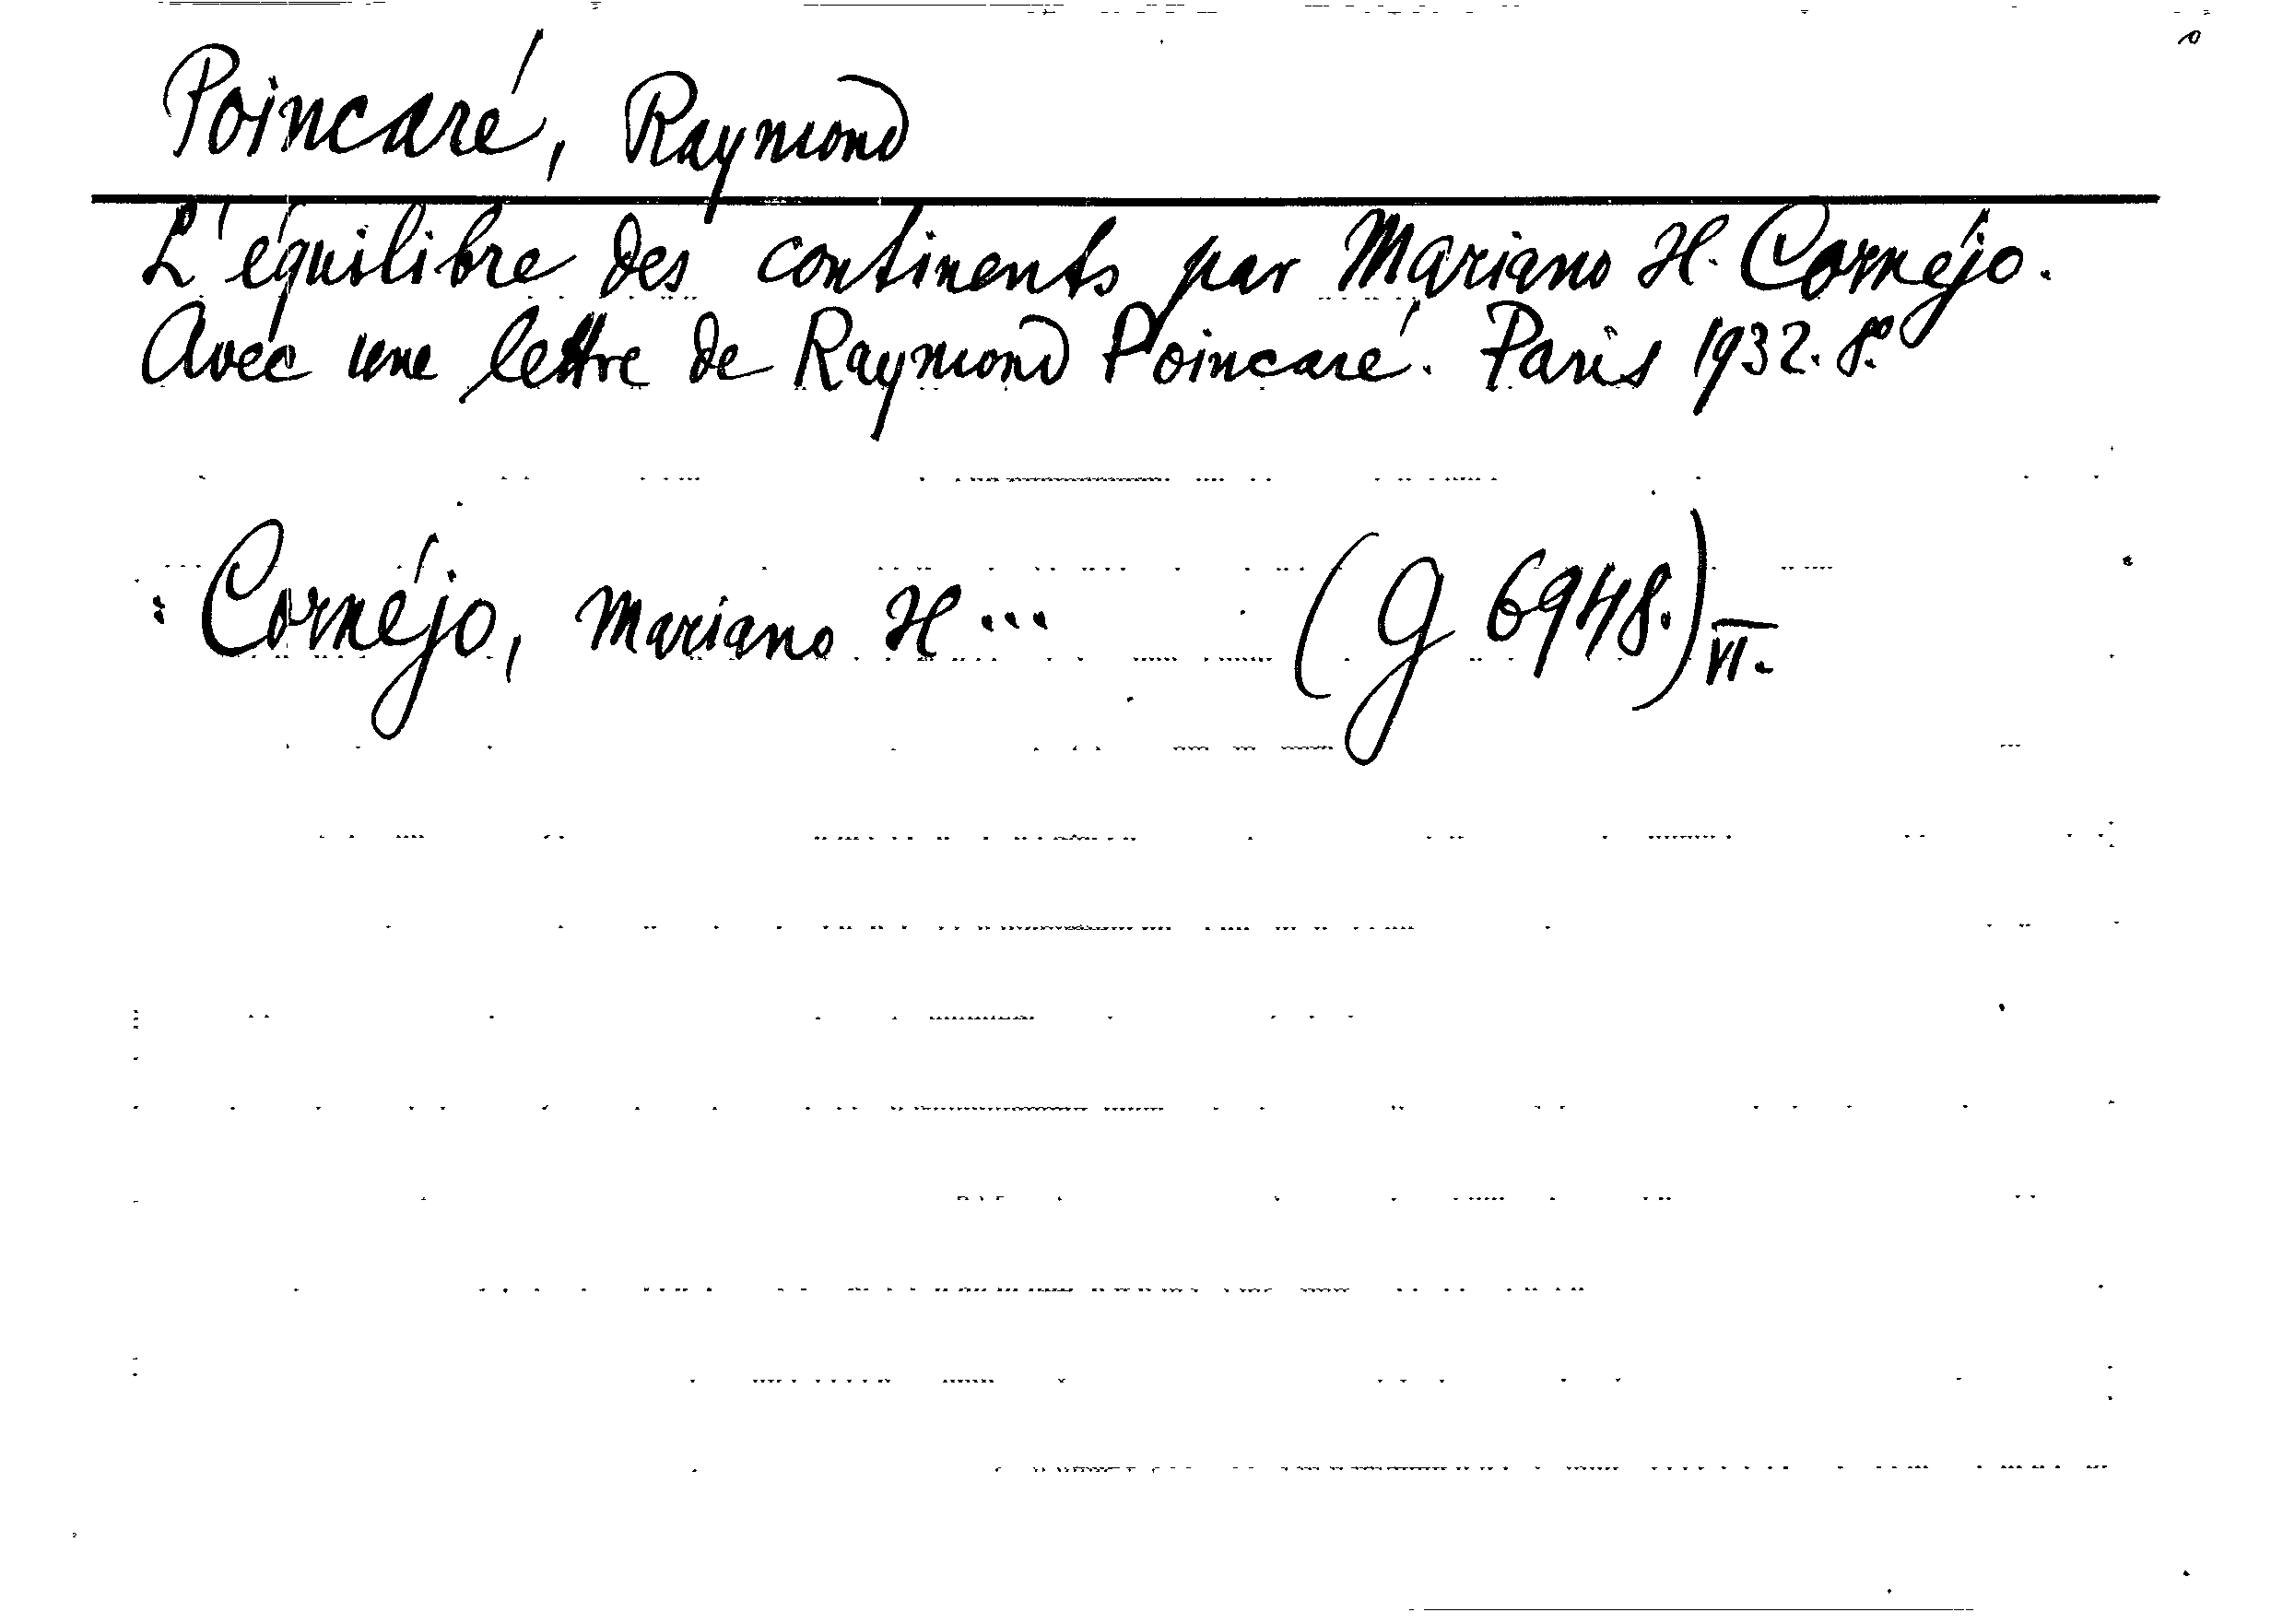 Poincaré, Raymond
L'équilibre des continents par Mariano H. Cornéjo.
Avec une lettre de Raymond Poincaré. Paris 1932. 8º
Cornéjo, Mariano H... (G 6948.) VI.